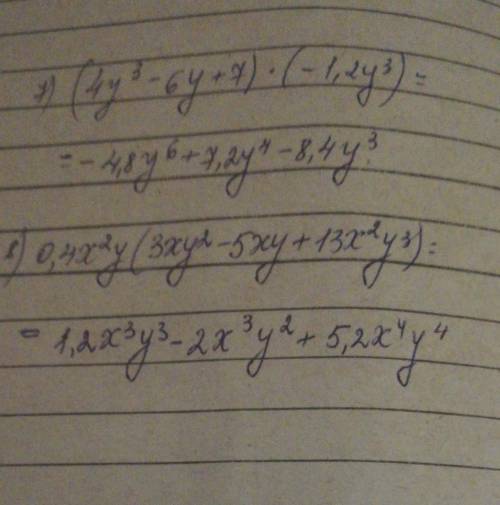 7) (4y³ - 6y + 7) · (-1,2y³) =
= -4,8y⁶ + 7,2y⁴ - 8,4y³.
8) 0,4x²y(3xy² - 5xy + 13x²y³) =
= 1,2x³y³ - 2x³y² + 5,2x⁴y⁴